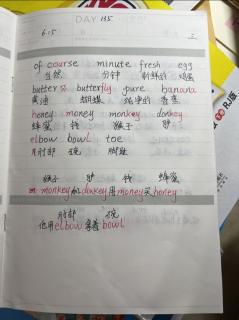 DAY 135
6.15
of course minute fresh egg
当然 分钟 新鲜的 鸡蛋
butter butterfly pure banana
黄油 蝴蝶 纯净的 香蕉
honey money monkey donkey
蜂蜜 钱 猴子 驴
elbow bowl toe
肘部 碗 脚趾
猴子 驴 钱 蜂蜜
monkey和donkey用money买honey
肘部 碗
他用elbow拿着bowl
RJ版